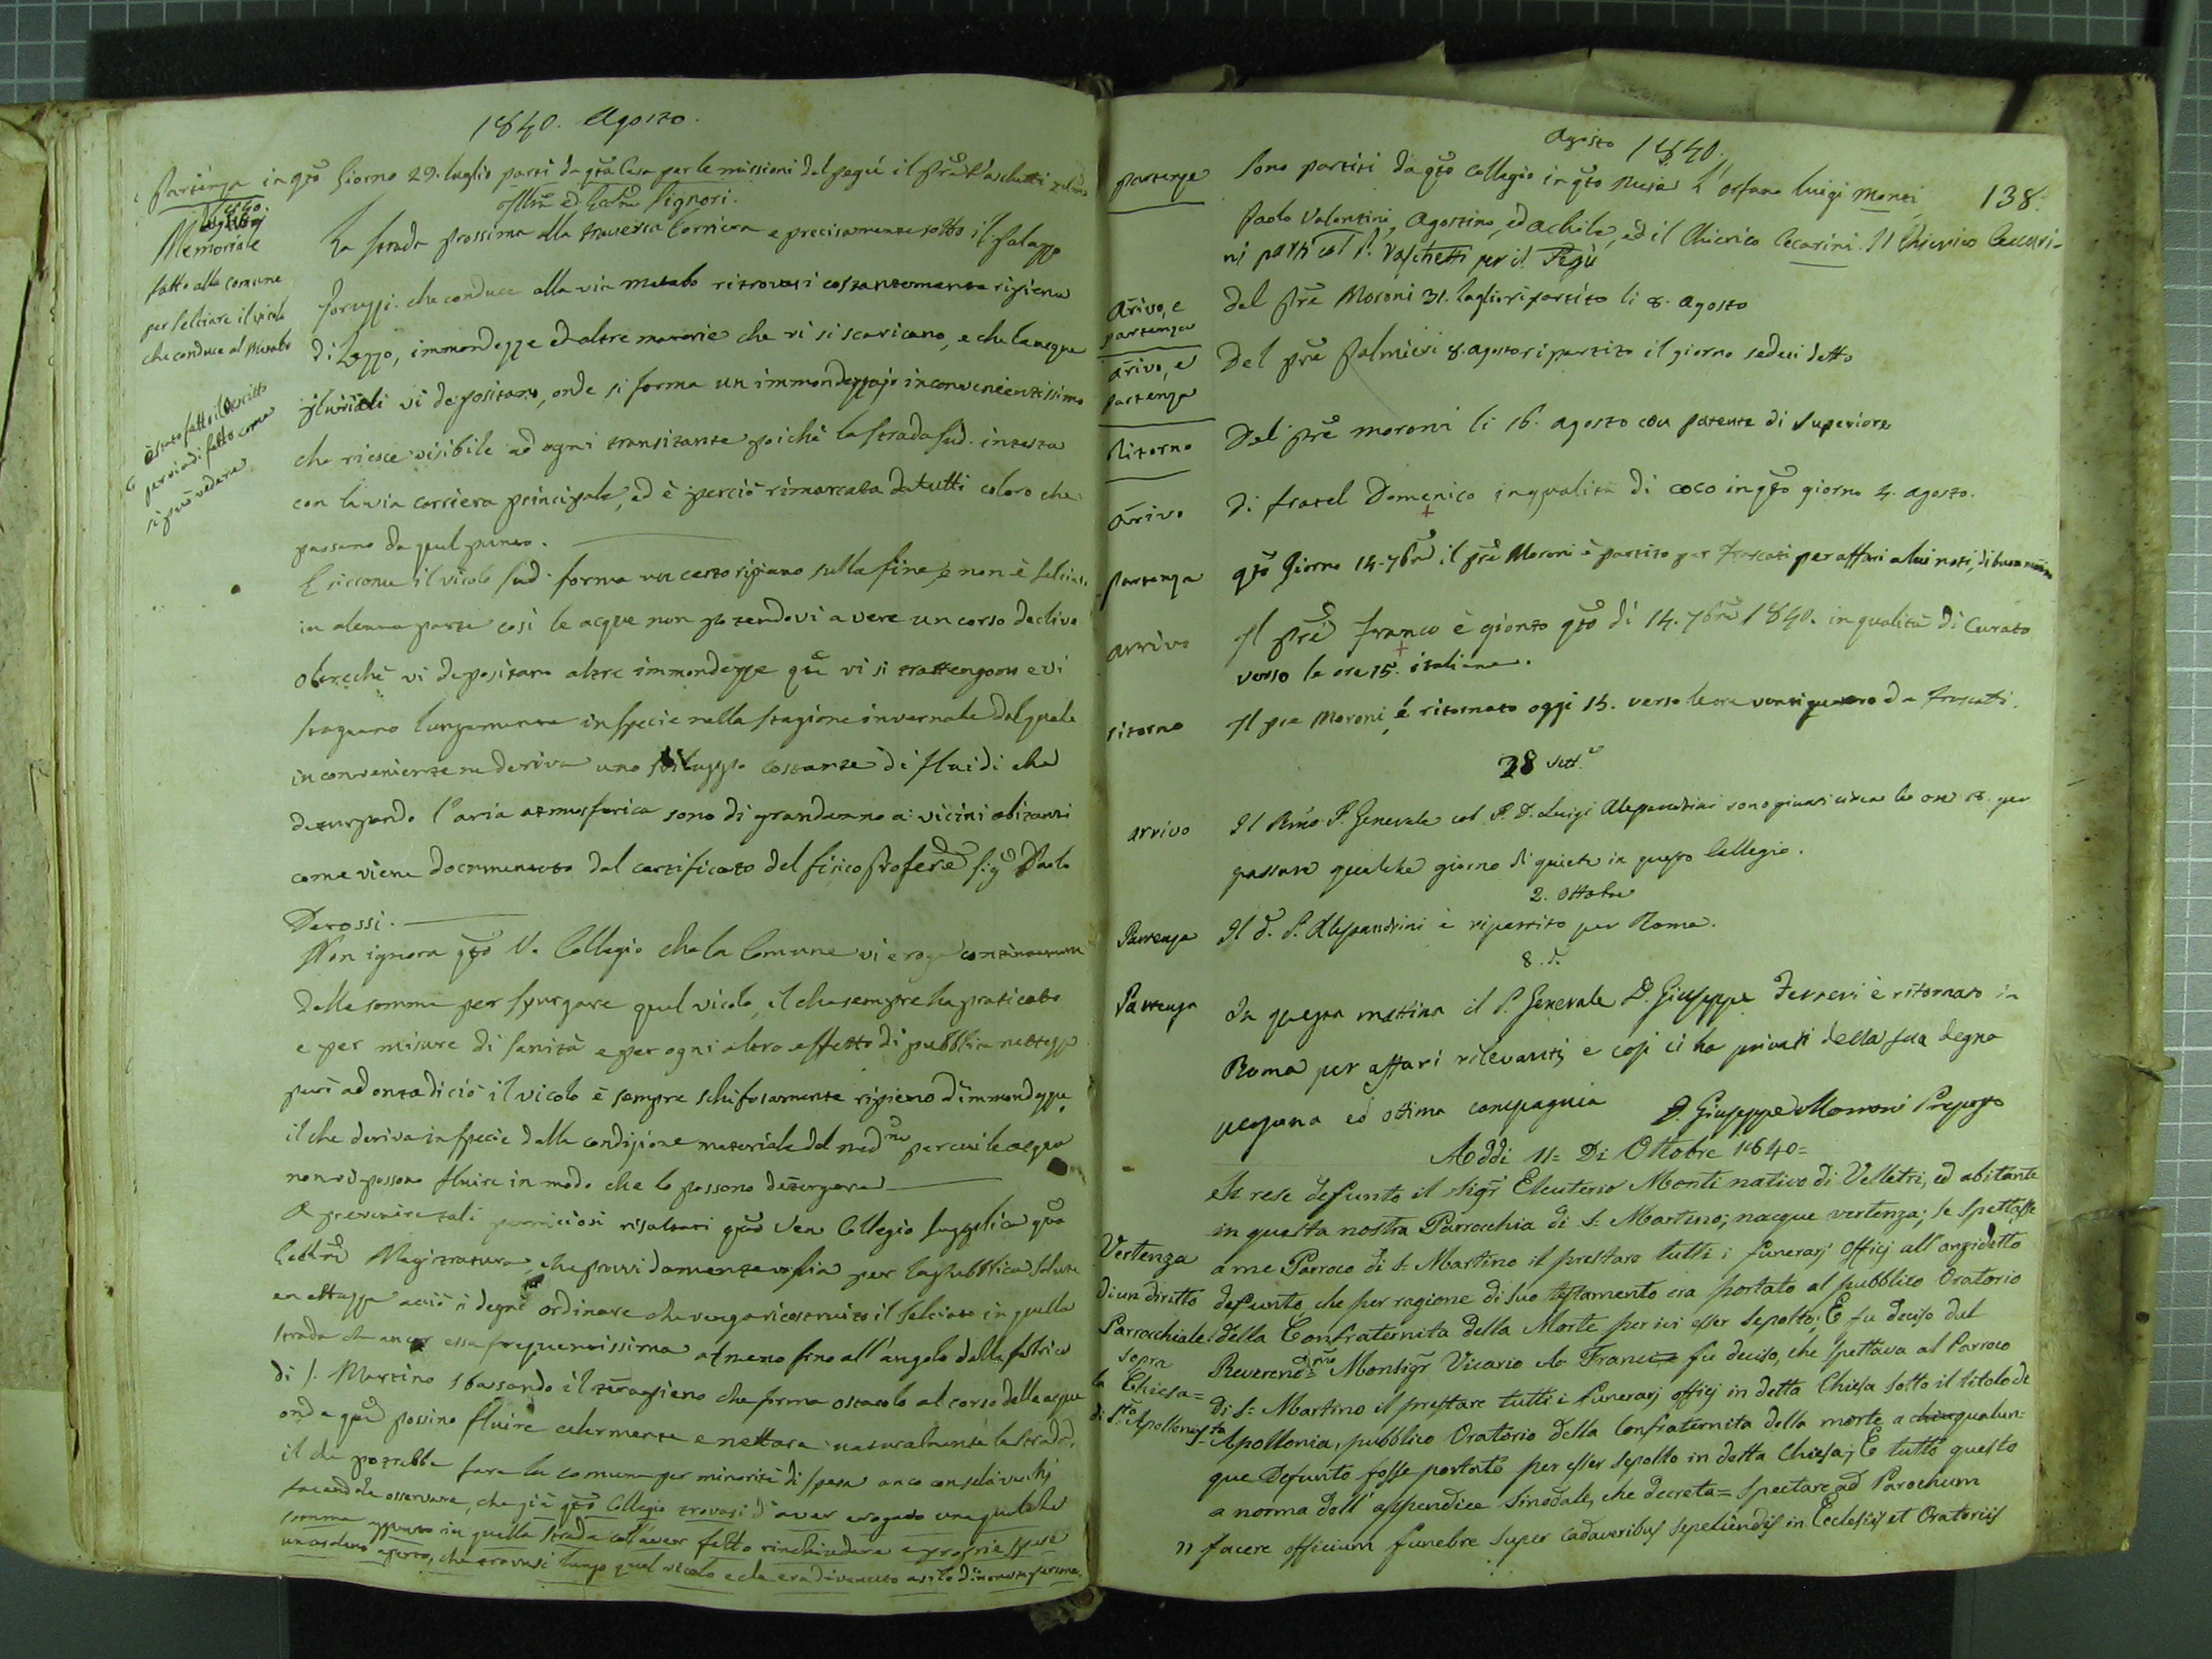 1840. Agosto.
Partenza in qto Giorno 29. luglio partì da qta Casa per le missioni del pegù il Pre Vaschetti
1840.
Illmi ed Eccmi Signori.
Memoriale
fatto alla comune
per selciare il vicolo
che conduce al Metabo
è stato fatto il selciato
per via di fatto come
si può vedere
La strada prossima alla traversa Corriera e precisamente sotto il palazzo
Foruzzi che conduce alla via metabo ritrovasi costantemente ripiena
di Lezzo, immondezze ed altre materie che vi si scaricano, e che le acque
pluviali vi depositano, onde si forma un immondezzajo inconvenientissimo
che riesce visibile ad ogni transitante poichè la strada sud. intesta
con la via corriera principale, ed è perciò rimarcata da tutti coloro che
passano da quel punto.
E siccome il vicolo sud. forma un certo ripiano sulla fine, e non è selciato
in alcuna parte così le acque non potendovi avere un corso declive
oltrechè vi depositano altre immondezze qte vi si trattengono e vi
stagnano lungamente in specie nella stagione invernale dal quale
inconveniente ne deriva uno sviluppo costante di fluidi che
deturpando l'aria atmosferica sono di gran danno a' vicini abitanti
come viene documentato dal certificato del fisico Profere Sigr Paolo
Derossi.
Non ignora qto V. Collegio che la Comune vi eroga continuamente
delle somme per spurgare quel vicolo, il che sempre ha praticato
e per misure di sanità e per ogni altro effetto di pubblica nettezza
pure ad onta di ciò il vicolo è sempre schifosamente ripieno d'immondezze,
il che deriva in specie dalla condizione materiale del medmo per cui le acque
non vi possono fluire in modo che lo possono detergere
A prevenire tali perniciosi risultati qto Ven Collegio supplica qta
Eccma Magistratura che provvidamente veglia per la pubblica salute
e nettezza acciò si degni ordinare che venga ricostruito il selciato in quella
strada che ancor essa frequentissima almeno fino all'angolo della fabrica
di S. Martino sbassando il terrapieno che forma ostacolo al corso delle acque
onde qte possino fluire celermente e nettare naturalmente la strada,
il che potrebbe fare la comune per minorità di spesa anco con selci vecchi
facendole osservare, che già qto Collegio trovasi di aver erogato una qualche
somma appunto in quella strada coll'aver fatto rinchiudere a proprie spese
un ardeno aperto, che trovasi lungo quel vicolo e che era divenuto asilo di persone.
Agosto 1840.
138.
partenze
Sono partiti da qto Collegio in qto Mese L'orfano Luigi Monti
Paolo Valentini, Agostino, ed Achile, ed il Chierico Cecarini. Il Chierico Ceccari-
ni partì col P. Vaschetti per il Pegù
arivo, e
partenza
Del Pre Moroni 31. Luglio ripartito li 8. agosto
arivo, e
partenza
Del Pre Palmieri 8. agosto ripartito il giorno sedici detto
Ritorno
Del Pre moroni li 16. agosto con patente di Superiore
arivo
Di fratel Domenico in qualità di coco in qto giorno 4. agosto.
partenza
qto Giorno 14-7bre il Pre Moroni è partito per Frascati per affari a lui noti, di buon mattino
arrivo
Il Pre Franco è gionto qto dì 14. 7bre 1840. in qualità di Curato
verso le ore 15. italiane.
ritorno
Il pre Moroni, è ritornato oggi 15. verso le ore ventiquattro da Frascati.
28 Sett.e
arrivo
Il Rmo P. Generale col P. D. Luigi Alessandrini sono giunti circa le ore 18. per
passare qualche giorno di quiete in questo Collegio.
2. Ottobre
Partenza
Il d. P. Alessandrini è ripartito per Roma.
8. d.
Partenza
In questa mattina il P. Generale D. Giuseppe Ferreri è ritornato in
Roma per affari rilevanti, e così ci ha privati della sua degna
persona ed ottima compagnia
D. Giuseppe Moroni Preposto
Addì 11= Di Ottobre 1840=
Vertenza
di un diritto
Parrocchiale
sopra
la Chiesa=
di S.ta Apollonia
Si rese defunto il Sigr Eleuterio Monti nativo di Velletri, ed abitante
in questa nostra Parrocchia di S. Martino; nacque vertenza; se spettasse
a me Parroco di S. Martino il prestare tutti i funerarj offizj all'anzidetto
defunto, che per ragione di suo testamento era portato al pubblico Oratorio
della Confraternita della Morte per ivi esser sepolto; E fu deciso dal
Reverend=mo Monsigr Vicario Lo Franci= fu deciso, che spettava al Parroco
di S= Martino il prestare tutti i Funerarj offizj in detta Chiesa sotto il titolo di
S=ta Apollonia, pubblico Oratorio della Confraternita della morte a chi qualun=
que Defunto fosse portato per esser sepolto in detta Chiesa; E tutto questo
a norma dell'appendice Sinodale, che decreta= Spectare ad Parochum
" facere officium funebre super cadaveribus sepeliendis in Ecclesiis et Oratoriis